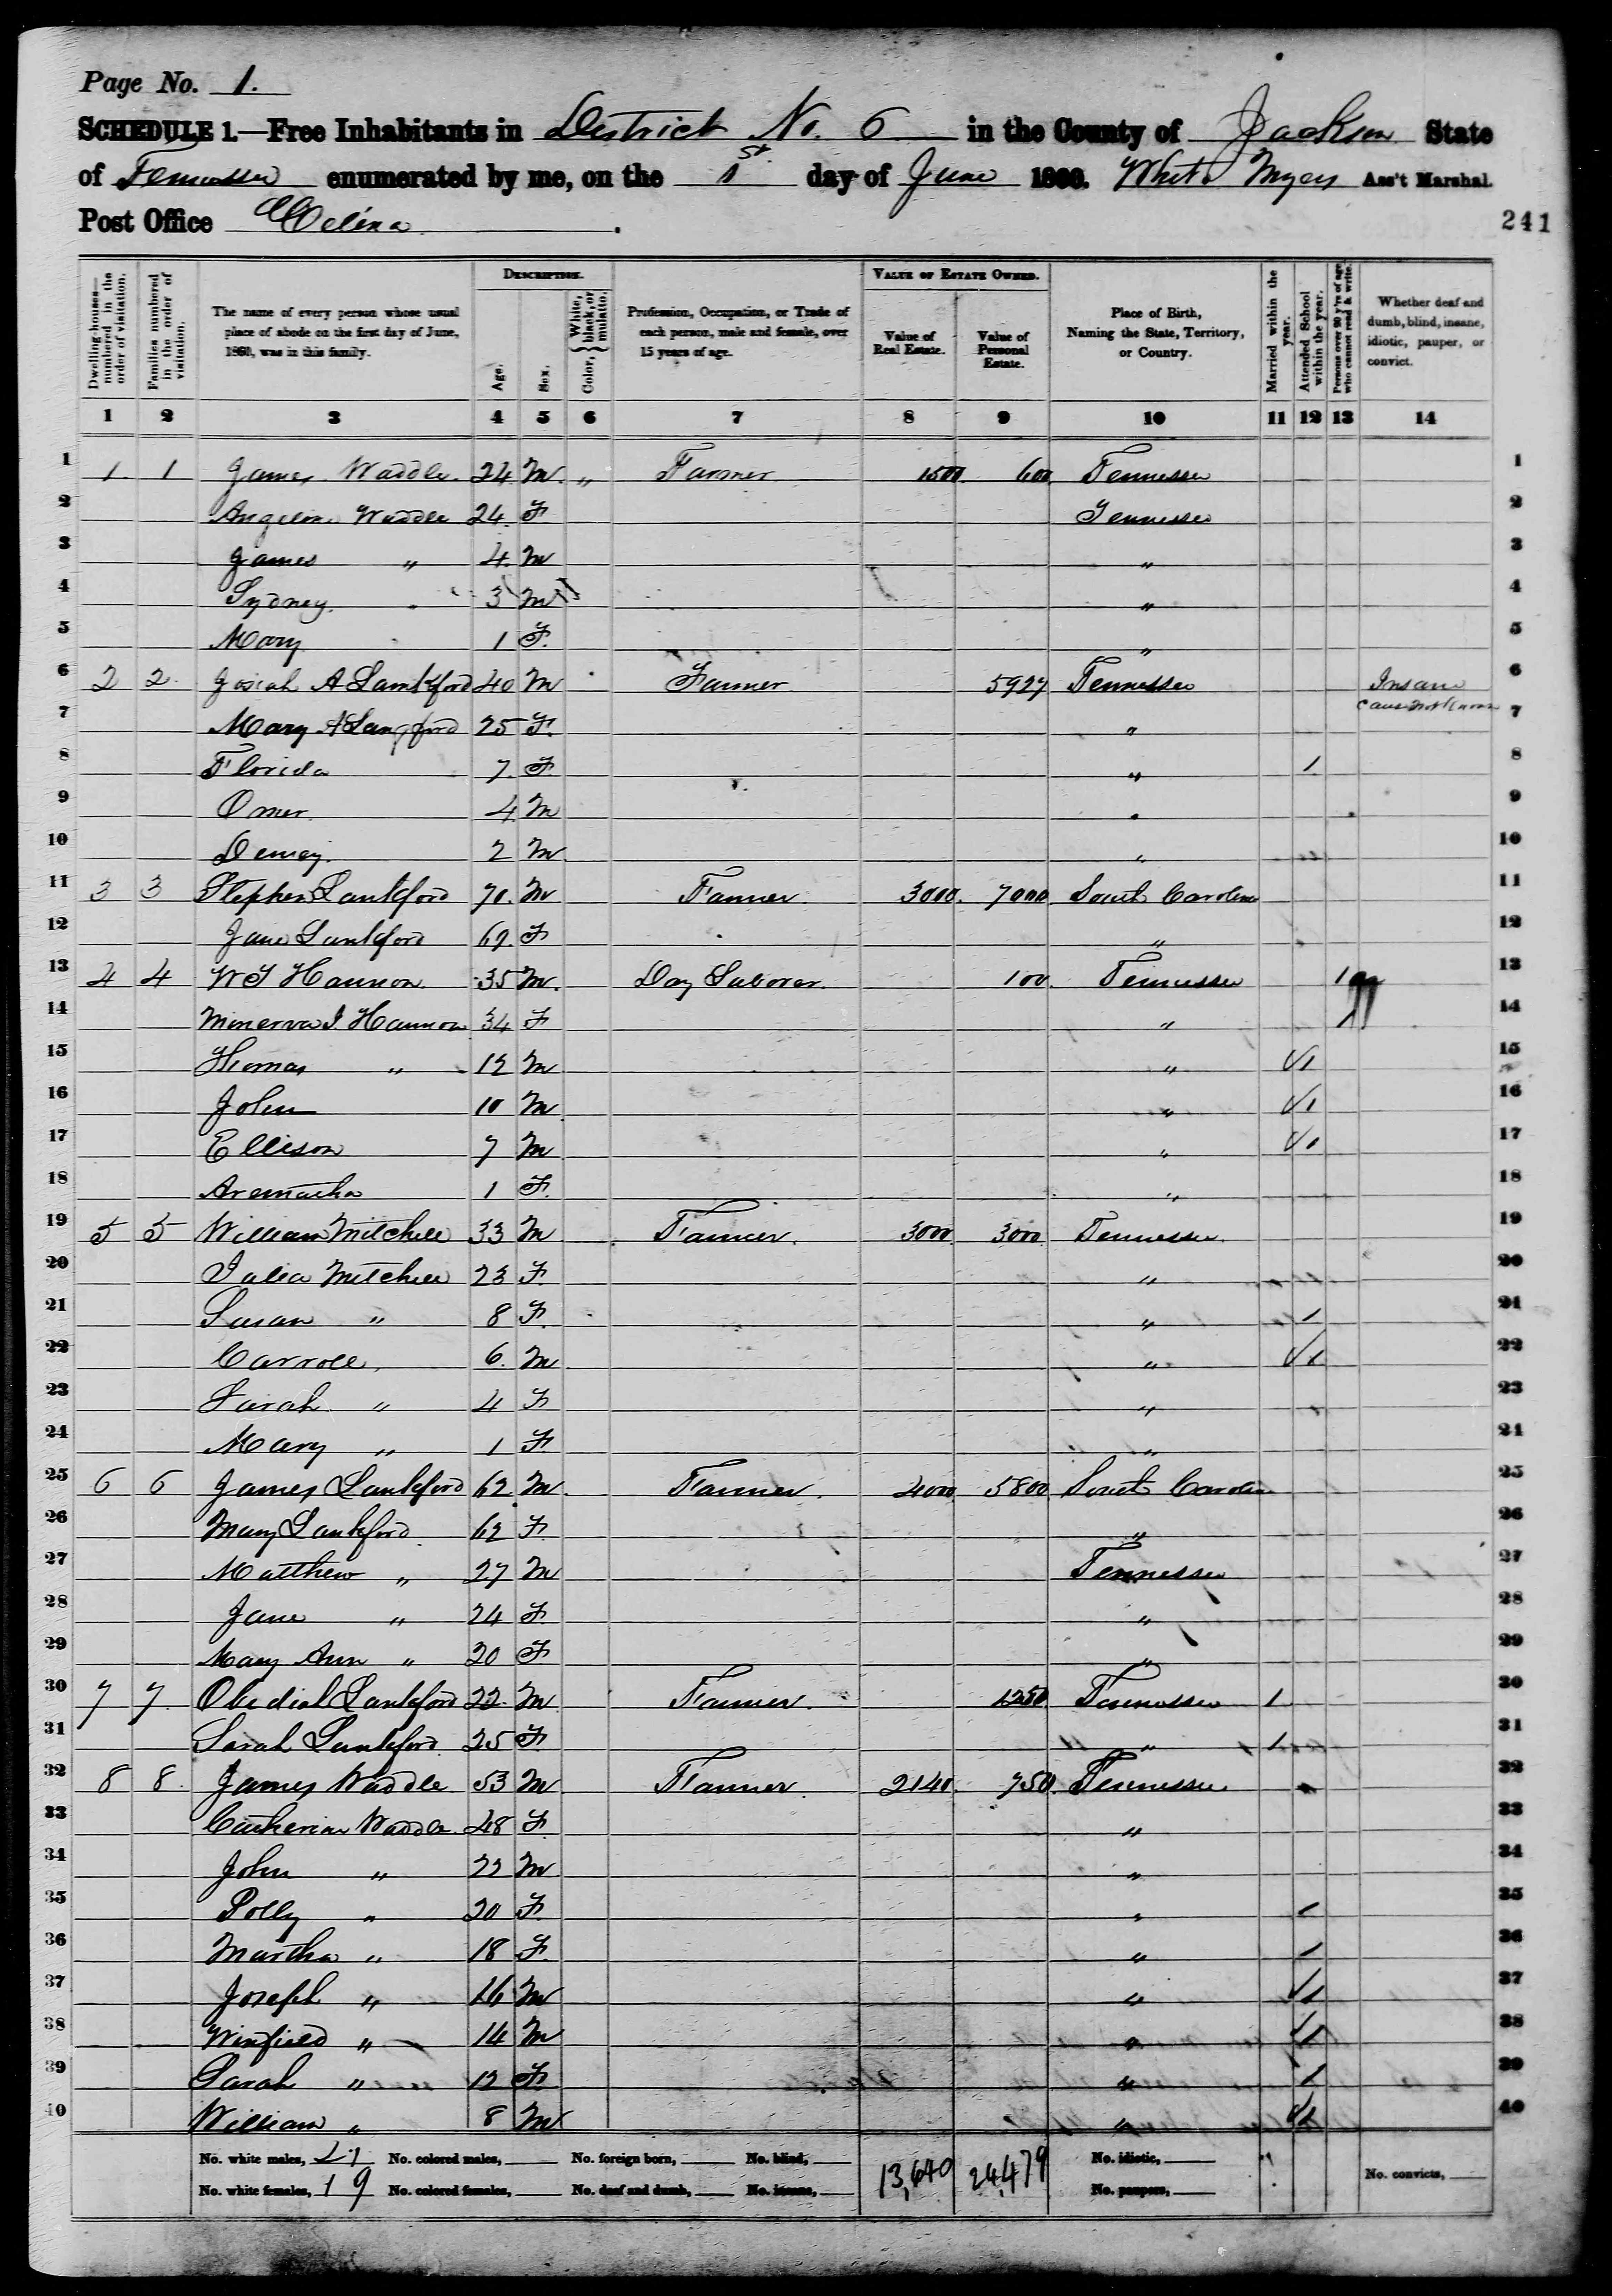 Page No. 1.
SCHEDULE 1.—Free Inhabitants in District No. 6 in the County of Jackson State
of Tennessee enumerated by me, on the 1st day of June 1860. White Myers Ass't Marshal.
Post Office Celina.
241
Dwelling-houses—numbered in the order of visitation.
Families numbered in the order of visitation.
The name of every person whose usual place of abode on the first day of June, 1860, was in this family.
DESCRIPTION.
Age.
Sex.
Color, { White, black, or mulatto.
Profession, Occupation, or Trade of each person, male and female, over 15 years of age.
VALUE OF ESTATE OWNED.
Value of Real Estate.
Value of Personal Estate.
Place of Birth, Naming the State, Territory, or Country.
Married within the year.
Attended School within the year.
Persons over 20 y'rs of age who cannot read & write.
Whether deaf and dumb, blind, insane, idiotic, pauper, or convict.
1 2 3 4 5 6 7 8 9 10 11 12 13 14
1 1 1 James Waddle 24 M " Farmer 1500 600 Tennessee 1
2 Angeline Waddle 24 F Tennessee 2
3 James " 4 M " 3
4 Sydney " 3 M " 4
5 Mary 1 F " 5
6 2 2 Josiah A Lankford 40 M Farmer 5927 Tennessee Insane 6
7 Mary A Langford 25 F " cause not known 7
8 Florida 7 F " 1 8
9 Omer 4 M " 9
10 2 M " 10
11 3 3 Stephen Lankford 70 M Farmer 3000 7000 South Carolina 11
12 Jane Lankford 69 F " 12
13 4 4 W Hannon 35 M Day Laborer 100 Tennessee 1 13
14 Minerva J. Hannon 34 F " 1 14
15 Thomas " 12 M " 1 15
16 John 10 M " 1 16
17 Ellison 7 M " 1 17
18 Arematha 1 F " 18
19 5 5 William Mitchell 33 M Farmer 3000 3000 Tennessee 19
20 Julia Mitchell 23 F " 20
21 Susan " 8 F " 1 21
22 Carroll 6 M " 1 22
23 Sarah " 4 F " 23
24 Mary " 1 F " 24
25 6 6 James Lankford 62 M Farmer 4000 5800 South Carolina 25
26 Mary Lankford 62 F " 26
27 Matthew " 27 M Tennessee 27
28 Jane " 24 F " 28
29 Mary Ann " 20 F " 29
30 7 7 Obediah Lankford 22 M Farmer 1250 Tennessee 1 30
31 Sarah Lankford 25 F " 1 31
32 8 8 James Waddle 53 M Farmer 2140 750 Tennessee 32
33 Catherine Waddle 48 F " 33
34 John " 22 M " 34
35 Polly " 20 F " 1 35
36 Martha " 18 F " 1 36
37 Joseph " 16 M " 1 37
38 Winfield " 14 M " 1 38
39 Sarah " 12 F " 1 39
40 William " 8 M " 1 40
No. white males, 21 No. colored males, No. foreign born, No. blind, 13,640 24,479 No. idiotic,
No. white females, 19 No. colored females, No. deaf and dumb, No. insane, No. paupers, No. convicts,